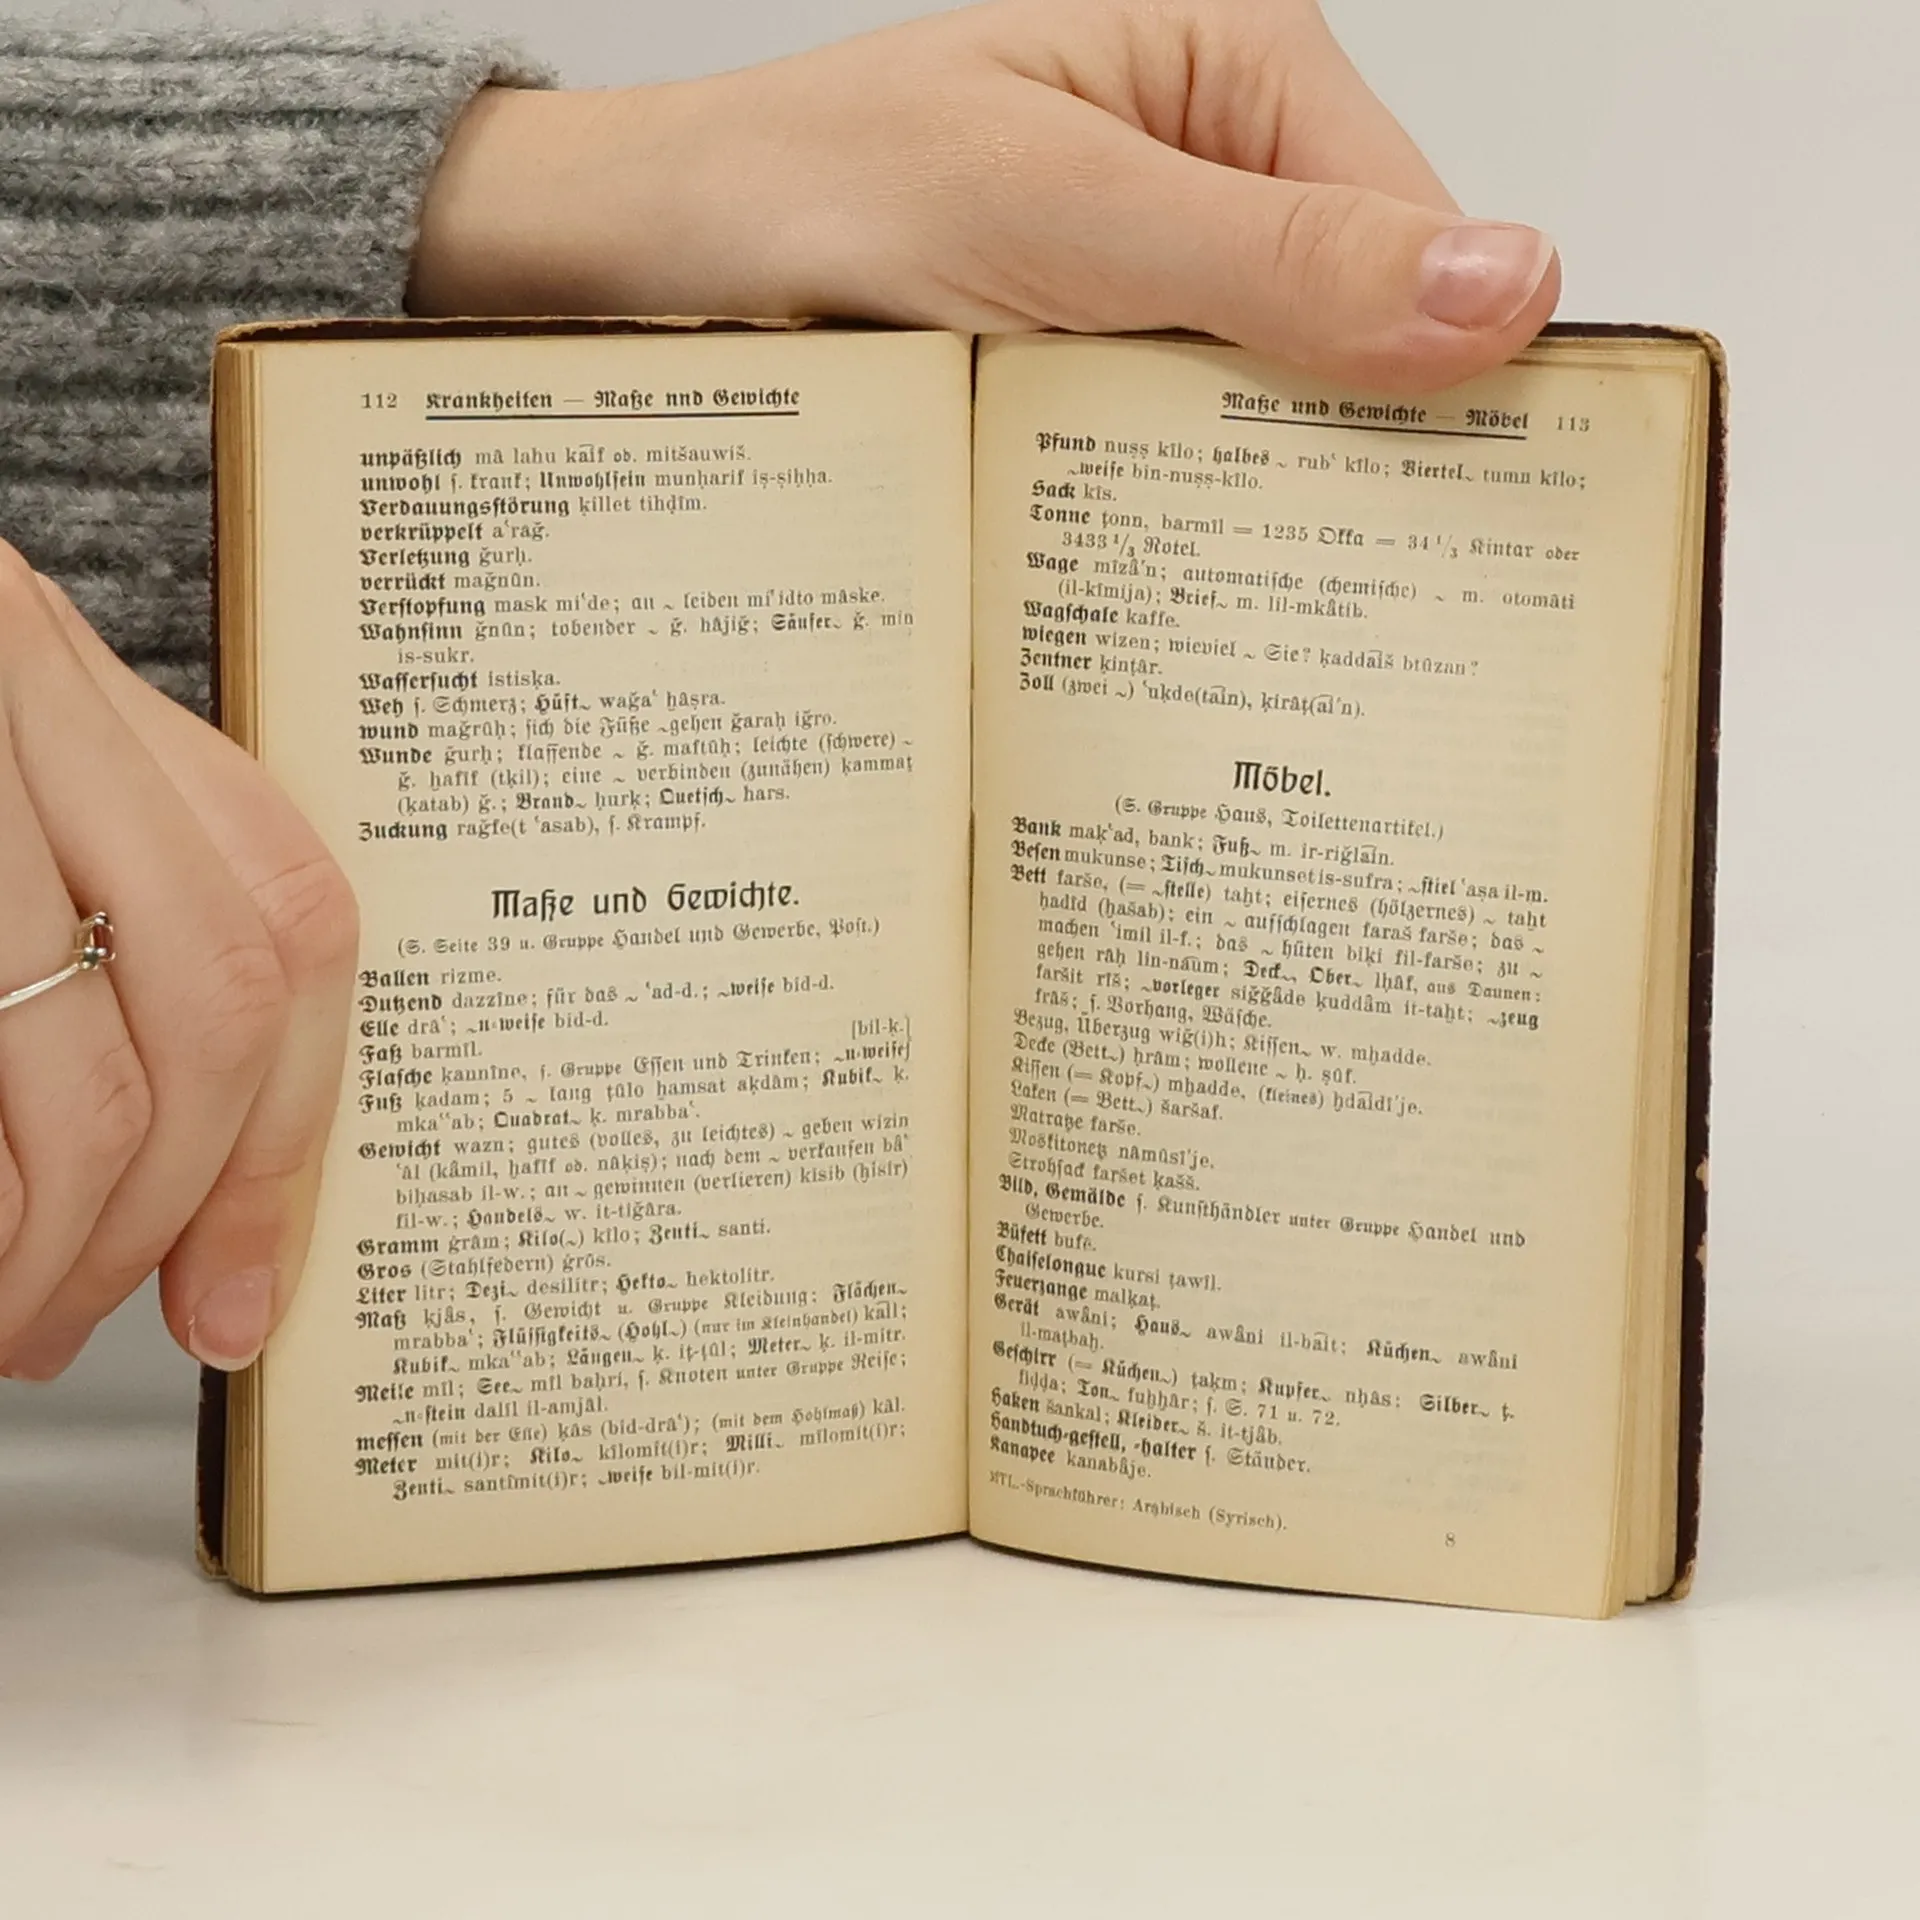 112 Krankheiten — Maße und Gewichte
unpäßlich mā lahu kaīf od. mitšauwiš.
unwohl s. krank; Unwohlsein munḥarif iṣ-ṣiḥḥa.
Verdauungsstörung ḳillet tihḍīm.
verkrüppelt aʿraǧ.
Verletzung ǧurḥ.
verrückt maǧnūn.
Verstopfung mask miʿde; an ~ leiden miʿidto mâske.
Wahnsinn ǧnūn; tobender ~ ǧ. hâjiǧ; Säufer~ ǧ. min
is-sukr.
Wassersucht istisḳa.
Weh s. Schmerz; Hüft~ waǧaʿ ḫâṣra.
wund maǧrūḥ; sich die Füße ~gehen ǧaraḥ iǧro.
Wunde ǧurḥ; klaffende ~ ǧ. maftūḥ; leichte (schwere) ~
ǧ. ḫafīf (tḳil); eine ~ verbinden (zunähen) ḳammaṭ
(ḳatab) ǧ.; Brand~ ḥurḳ; Quetsch~ hars.
Zuckung raǧfe(t ʿasab), s. Krampf.
Maße und Gewichte.
(S. Seite 39 u. Gruppe Handel und Gewerbe, Post.)
Ballen rizme.
Dutzend dazzīne; für das ~ ʿad-d.; ~weise bid-d.
Elle drâʿ; ~n=weise bid-d. [bil-ḳ.]
Faß barmīl.
Flasche ḳannīne, s. Gruppe Essen und Trinken; ~n=weise]
Fuß ḳadam; 5 ~ lang ṭūlo ḫamsat aḳdâm; Kubik~ ḳ.
mkaʿʿab; Quadrat~ ḳ. mrabbaʿ.
Gewicht wazn; gutes (volles, zu leichtes) ~ geben wizin
ʿâl (kâmil, ḫafīf od. nâḳiṣ); nach dem ~ verkaufen bâʿ
biḥasab il-w.; an ~ gewinnen (verlieren) kisib (ḫisir)
fil-w.; Handels~ w. it-tiǧâra.
Gramm ġrâm; Kilo(~) kīlo; Zenti~ santi.
Gros (Stahlfedern) ġrōs.
Liter litr; Dezi~ desilitr; Hekto~ hektolitr.
Maß ḳjâs, s. Gewicht u. Gruppe Kleidung; Flächen~
mrabbaʿ; Flüssigkeits~ (Hohl~) (nur im Kleinhandel) kaīl;
Kubik~ mkaʿʿab; Längen~ ḳ. iṭ-ṭūl; Meter~ ḳ. il-mitr.
Meile mīl; See~ mīl baḥri, s. Knoten unter Gruppe Reise;
~n=stein dalīl il-amjâl.
messen (mit der Elle) ḳâs (bid-drâʿ); (mit dem Hohlmaß) kâl.
Meter mit(i)r; Kilo~ kīlomit(i)r; Milli~ mīlomit(i)r;
Zenti~ santīmit(i)r; ~weise bil-mit(i)r.
Maße und Gewichte — Möbel 113
Pfund nuṣṣ kīlo; halbes ~ rubʿ kīlo; Viertel~ tumn kīlo;
~weise bin-nuṣṣ-kīlo.
Sack kīs.
Tonne ṭonn, barmīl = 1235 Okka = 34 1/3 Kintar oder
3433 1/3 Rotel.
Wage mīzâ'n; automatische (chemische) ~ m. otomâti
(il-kīmija); Brief~ m. lil-mkâtīb.
Wagschale kaffe.
wiegen wizen; wieviel ~ Sie? ḳaddaīš btūzan?
Zentner ḳinṭâr.
Zoll (zwei ~) ʿuḳde(taīn), ḳirâṭ(aī'n).
Möbel.
(S. Gruppe Haus, Toilettenartikel.)
Bank maḳʿad, bank; Fuß~ m. ir-riǧlaīn.
Besen mukunse; Tisch~ mukunset is-sufra; ~stiel ʿaṣa il-m.
Bett farše, (= ~stelle) taḫt; eisernes (hölzernes) ~ taḫt
ḥadīd (ḫašab); ein ~ aufschlagen faraš farše; das ~
machen ʿimil il-f.; das ~ hüten biḳi fil-farše; zu ~
gehen râḥ lin-naūm; Deck~, Ober~ lḥâf, aus Daunen:
faršit rīš; ~vorleger siǧǧâde ḳuddâm it-taḫt; ~zeug
frâš; s. Vorhang, Wäsche.
Bezug, Überzug wiǧ(i)h; Kissen~ w. mḫadde.
Decke (Bett~) ḥrâm; wollene ~ ḥ. ṣūf.
Kissen (= Kopf~) mḫadde, (kleines) ḫdaīdī'je.
Laken (= Bett~) šaršaf.
Matratze farše.
Moskitonetz nâmūsī'je.
Strohsack faršet ḳašš.
Bild, Gemälde s. Kunsthändler unter Gruppe Handel und
Gewerbe.
Büfett bufē.
Chaiselongue kursi ṭawīl.
Feuerzange malḳaṭ.
Gerät awâni; Haus~ awâni il-baīt; Küchen~ awâni
il-maṭbaḫ.
Geschirr (= Küchen~) ṭaḳm; Kupfer~ nḥâs; Silber~ ṭ.
fiḍḍa; Ton~ fuḫḫâr; s. S. 71 u. 72.
Haken šankal; Kleider~ š. it-tjâb.
Handtuch=gestell, =halter s. Ständer.
Kanapee kanabâje.
MTL.-Sprachführer: Arabisch (Syrisch).
8